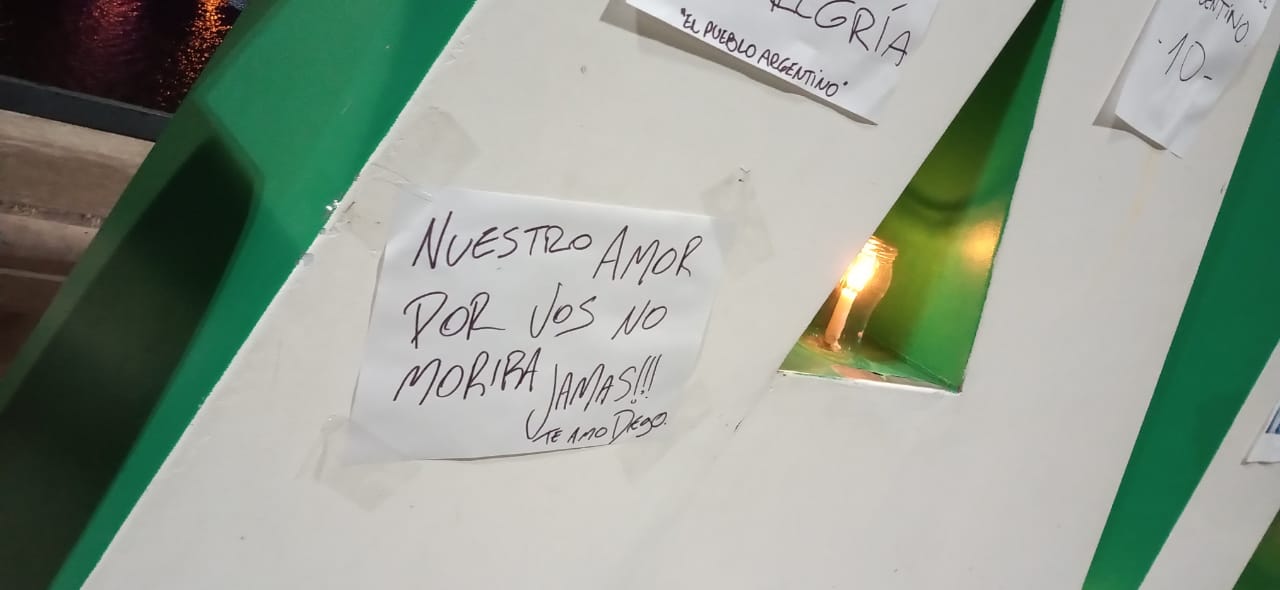 ALEGRÍA
"EL PUEBLO ARGENTINO"
NUESTRO AMOR
POR VOS NO
MORIRA JAMAS!!!
TE AMO DIEGO.
-10-